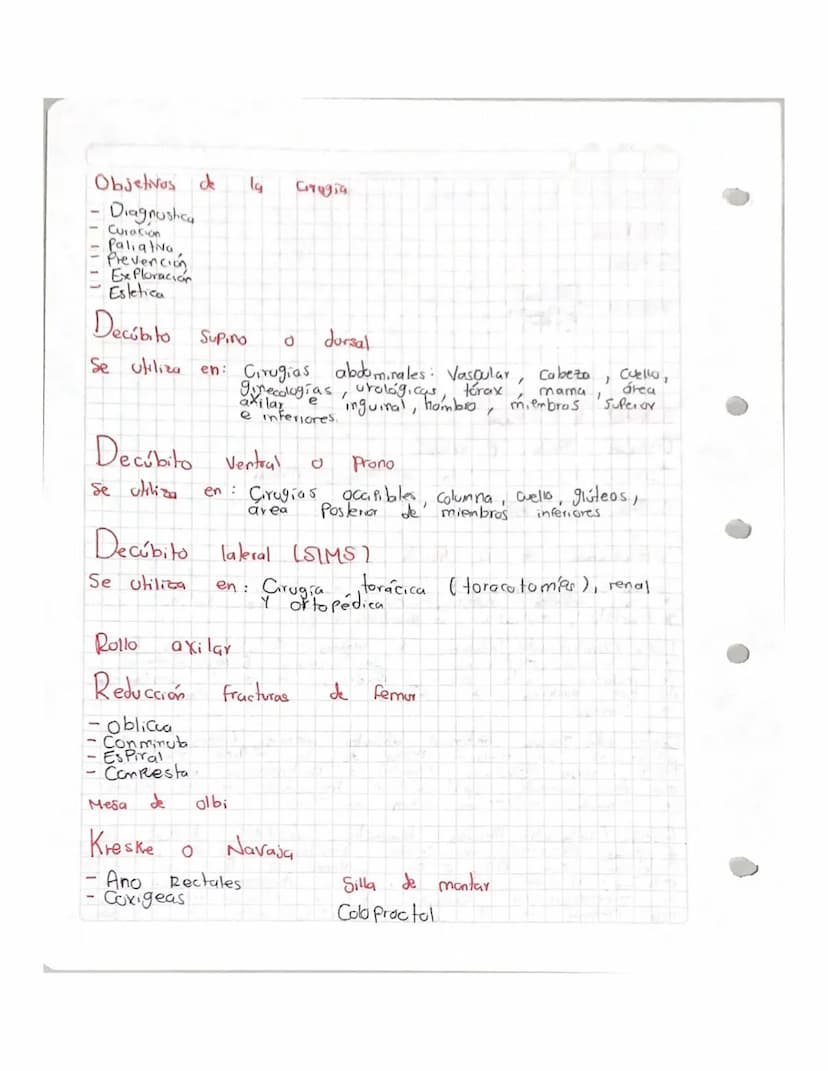 Objetivos de la Cirugía
- Diagnostica
- Curación
- Paliativa
- Prevención
- Exploración
- Estetica
Decúbito Supino o dorsal
Se utiliza en: Cirugías abdominales: Vascular, Cabeza, Cuello,
ginecologías, urológicas, tórax, mama, área
axilar e inguinal, hombro, miembros superior
e inferiores.
Decúbito Ventral o Prono
Se utiliza en: Cirugías occipibles, columna, cuello, glúteos,
área Posterior de mienbros inferiores
Decúbito lateral (SIMS)
Se utiliza en: Cirugía torácica (toracotomías), renal
Y ortopédica
Rollo axilar
Reducción fracturas de femur
- Oblicua
- Conminuta
- Espiral
- Compesta
Mesa de olbi
Kreske o Navaja
- Ano Rectales
- Coxigeas
Silla de montar
Coloproctol